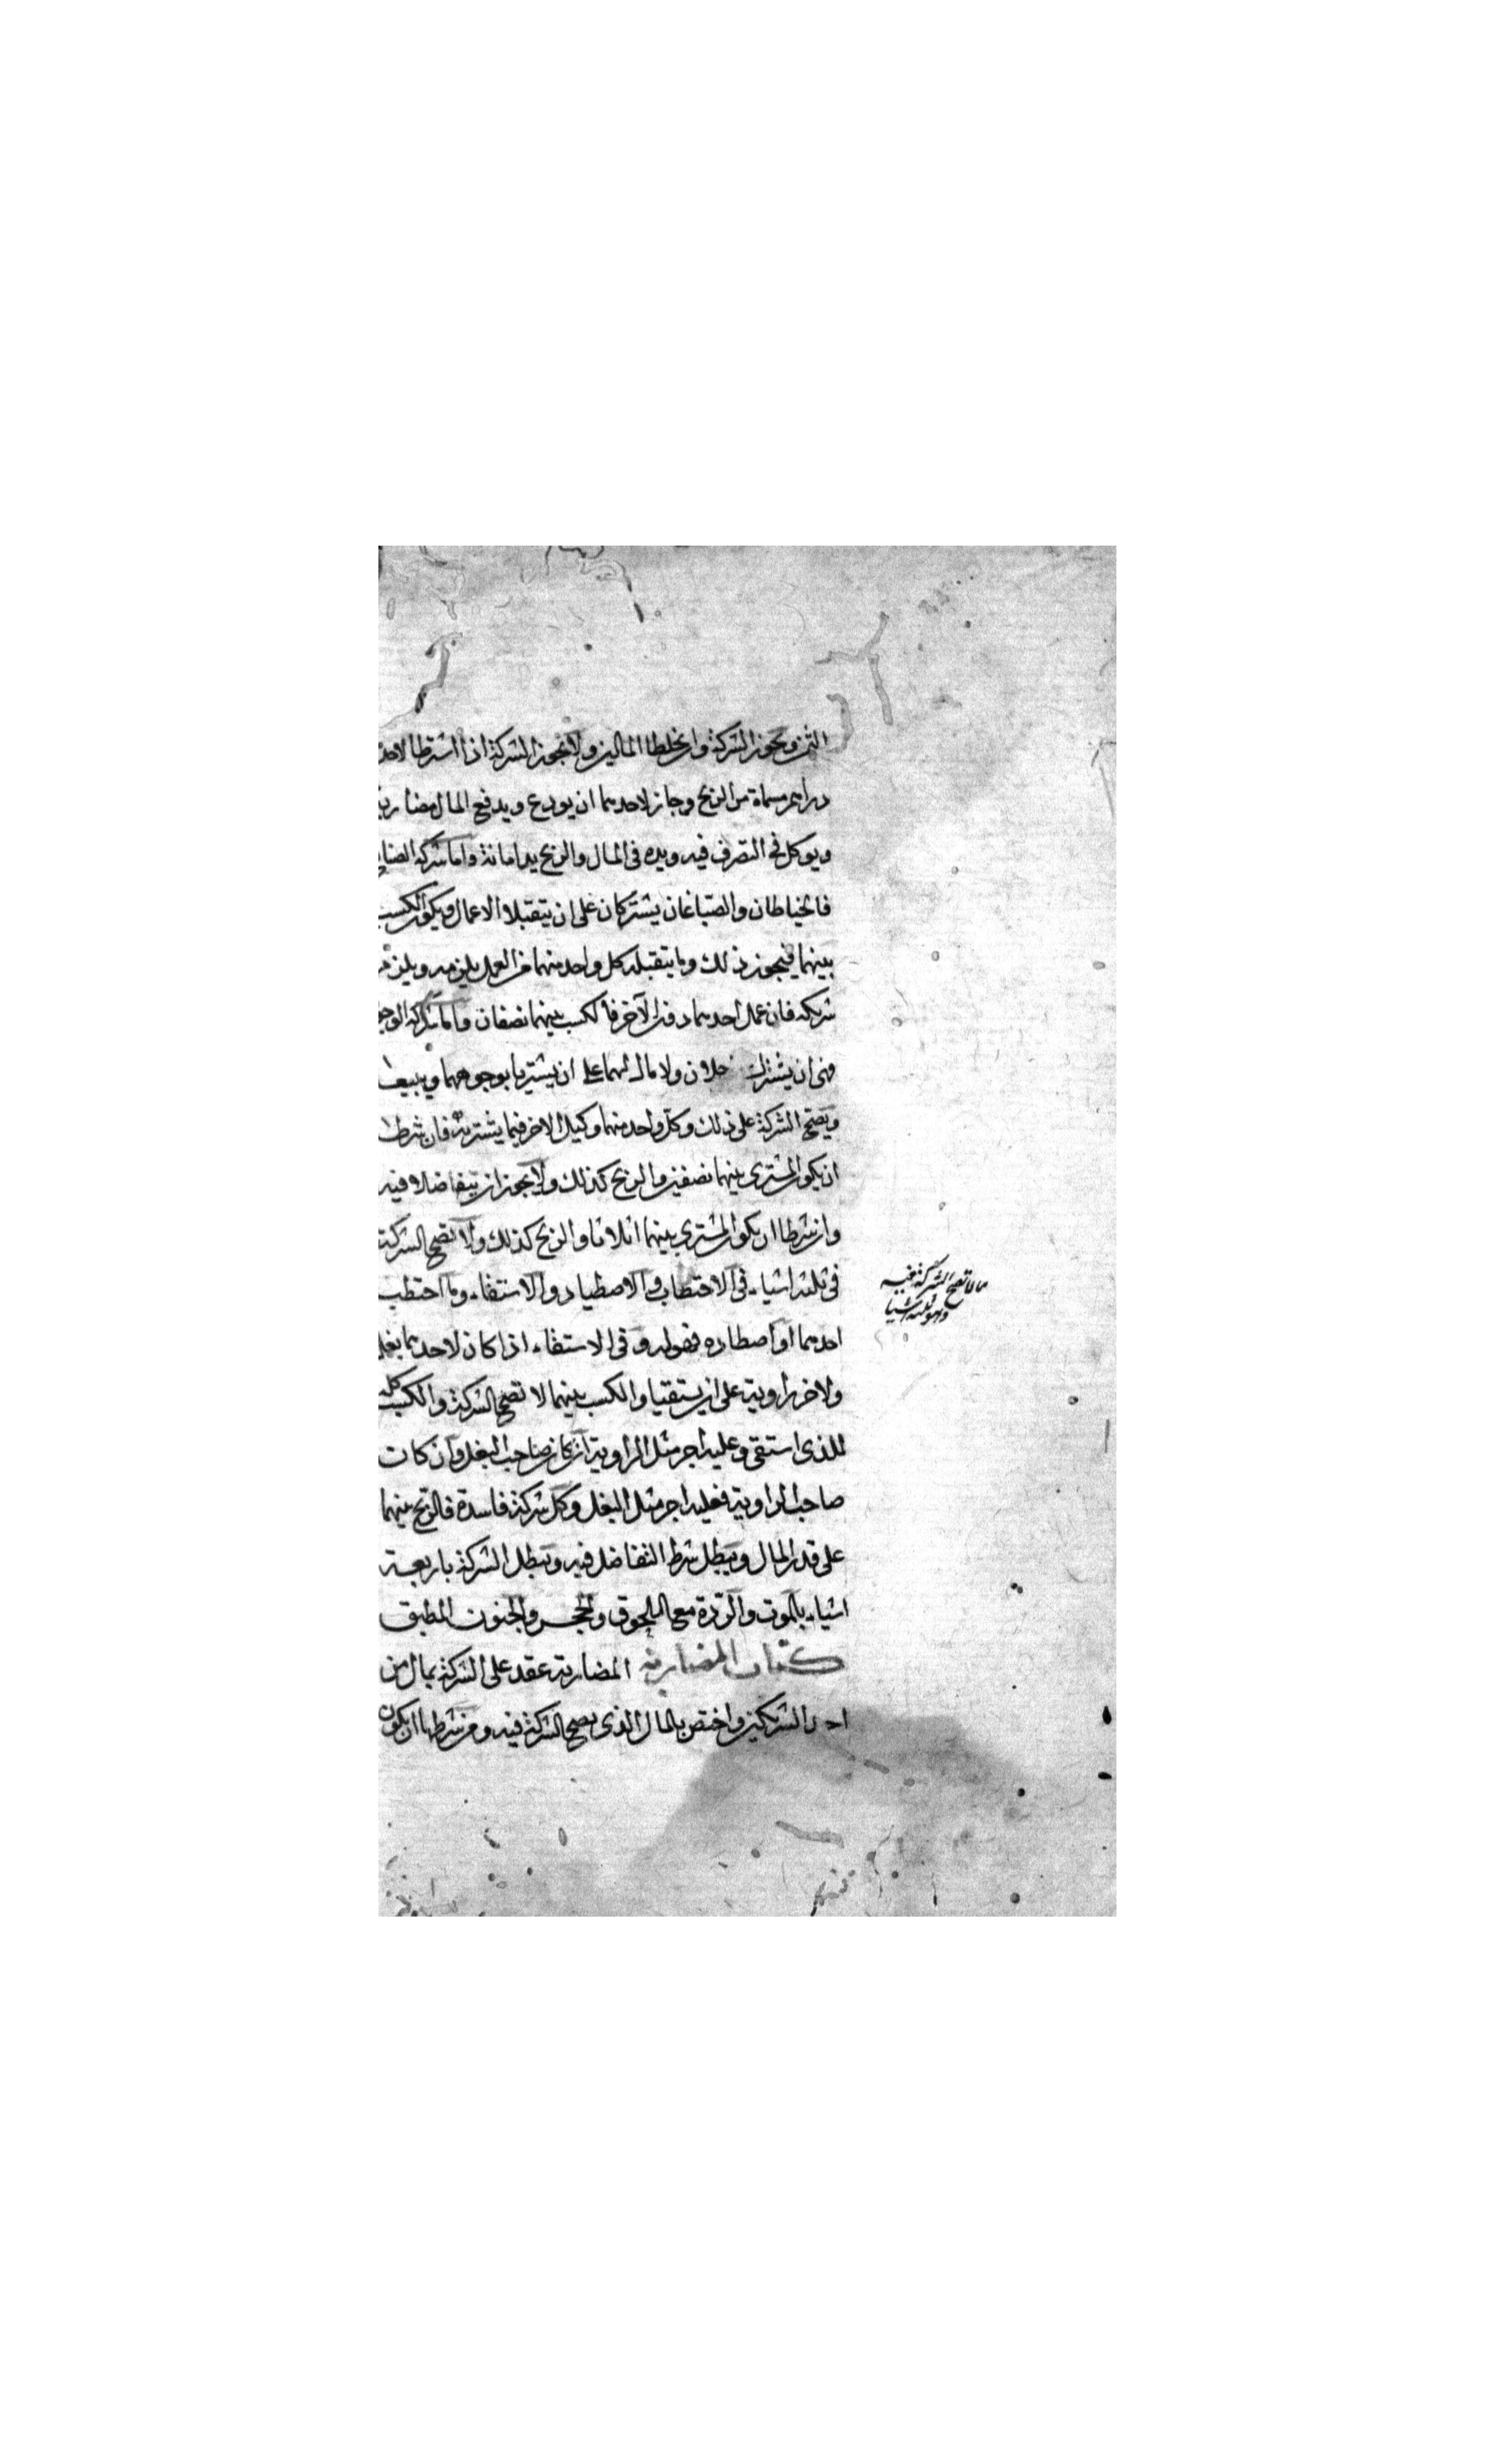 الثمن ويجوز الشركة وان يخلطا المالين ولا يجوز الشركة اذا اشترطا لاحد
دراهم مسماة من الربح وجاز لاحدهما ان يودع ويدفع المال مضاربة
ويوكل في التصرف فيه ويده في المال والربح يد امانة واما شركة الصنايع
فالخياطان والصباغان يشتركان على ان يتقبلا الاعمال ويكون الكسب
بينهما فيجوز ذلك وما يتقبله كل واحد منهما من العمل يلزمه ويلزم
شريكه فان عمل احدهما دون الآخر فالكسب بينهما نصفان واما شركة الوجوه
فهى ان يشترك رجلان ولا مال لهما على ان يشتريا بوجوههما ويبيعا
ويصح الشركة على ذلك وكل واحد منهما وكيل الاخر فيما يشتريه فان شرطا
ان يكون المشترى بينهما نصفين والربح كذلك ولا يجوز ان يتفاضلا فيه
وان شرطا ان يكون المشترى بينهما اثلاثا والربح كذلك ولا تصح الشركة
في ثلثة اشياء في الاحتطاب والاصطياد والاستقاء وما احتطب
احدهما او اصطاده فهو له وفى الاستقاء اذا كان لاحدهما بغل
ولاخر راوية على ان يستقيا والكسب بينهما لا تصح الشركة والكسب كله
للذى استقى وعليه اجر مثل الراوية ان كان صاحب البغل وان كان
صاحب الراوية فعليه اجر مثل البغل وكل شركة فاسدة فالربح بينهما
على قدر المال ويبطل شرط التفاضل فيه وتبطل الشركة باربعة
اشياء بالموت والردة مع اللحوق والحجر والجنون المطبق
كتاب المضاربة المضاربة عقد على الشركة بمال من
احد الشريكين واختص بالمال الذى تصح الشركة فيه ومن شرطها ان يكون
ما لا تصح الشركة فيه
وهو ثلثة اشيا